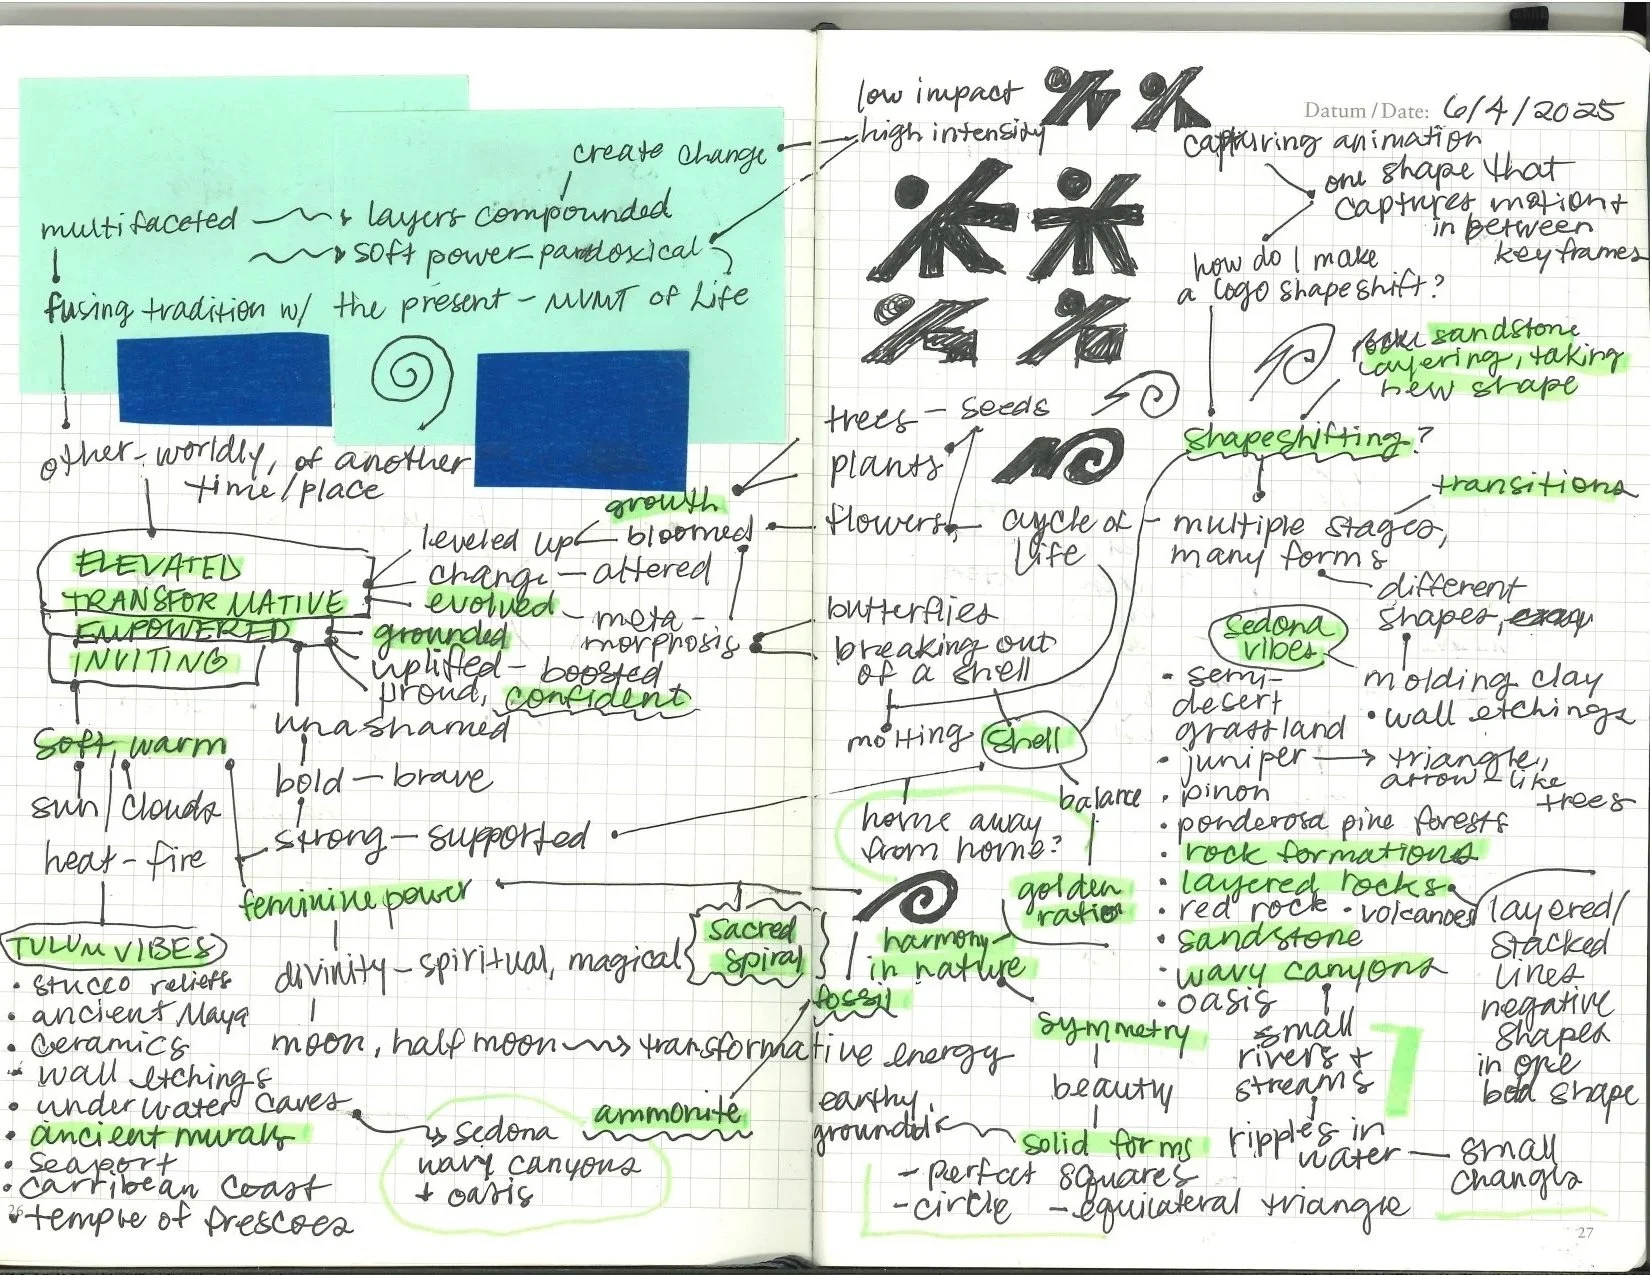 create change
multifaceted
layers compounded
soft power - paradoxical
fusing tradition w/ the present - MVMT of Life
other-worldly, of another
time/place
growth
leveled up
bloomed
ELEVATED
change - altered
TRANSFORMATIVE
evolved - meta-
morphosis
EMPOWERED
grounded
INVITING
uplifted - boosted
proud, confident
unashamed
soft, warm
bold - brave
sun / clouds
strong - supported
heat - fire
feminine power
TULUM VIBES
Sacred
Spiral
divinity - spiritual, magical
• stucco reliefs
• ancient Maya
• ceramics
• wall etchings
• underwater caves
• ancient murals
• seaport
• carribean coast
• temple of frescoes
moon, half moon → transformative energy
ammonite
sedona
wavy canyons
+ oasis
26
low impact
high intensity
Datum / Date: 6/4/2025
capturing animation
one shape that
captures motion +
in between
keyframes
how do I make
a logo shapeshift?
sandstone
layering, taking
new shape
trees - seeds
plants
flowers
cycle of
life
shapeshifting?
transitions
multiple stages,
many forms
different
shapes,
butterflies
breaking out
of a shell
sedona
vibes
molding clay
• wall etchings
molting
shell
balance
home away
from home?
• semi-
desert
grassland
• juniper → triangle,
arrow-like
trees
• pinon
• ponderosa pine forests
• rock formations
• layered rocks
• red rock • volcanoes
• sandstone
• wavy canyons
• oasis
golden
ratio
harmony
in nature
fossil
symmetry
beauty
earthy,
grounded
solid forms
- perfect squares
- circle - equilateral triangle
small
rivers +
streams
ripples in
water - small
changes
layered/
stacked
lines
negative
shapes
in one
bold shape
27